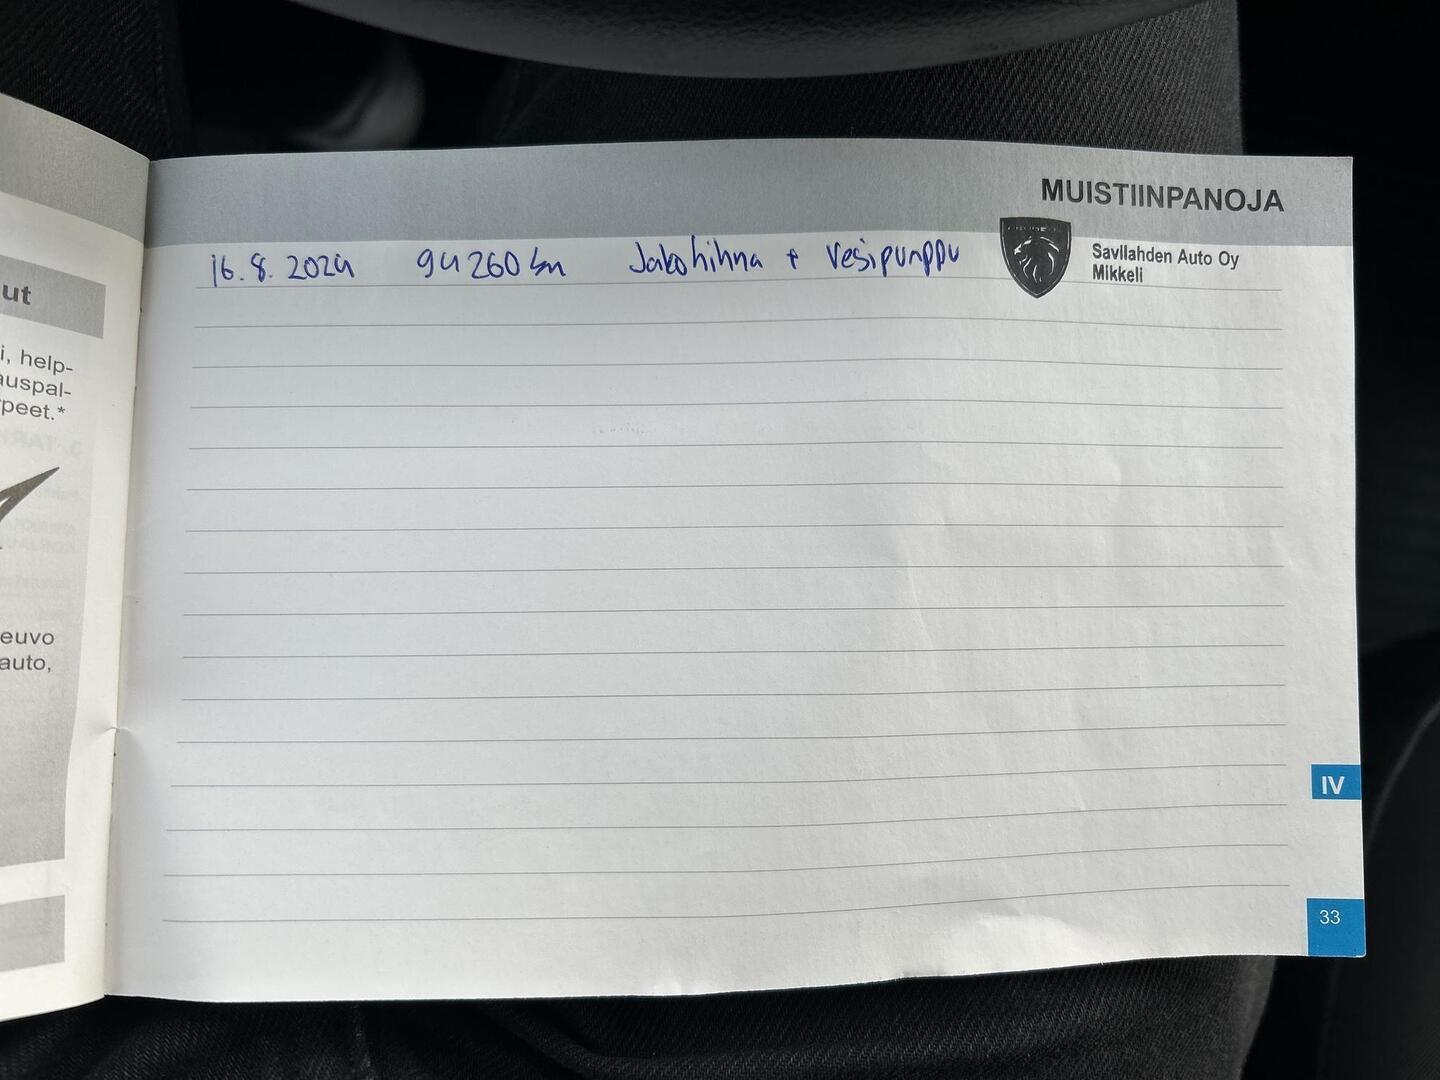 MUISTIINPANOJA
16.8.2024 94260 km Jakohihna + Vesipumppu
Savilahden Auto Oy
Mikkeli
ut
i, help-
auspal-
peet.*
euvo
auto,
IV
33